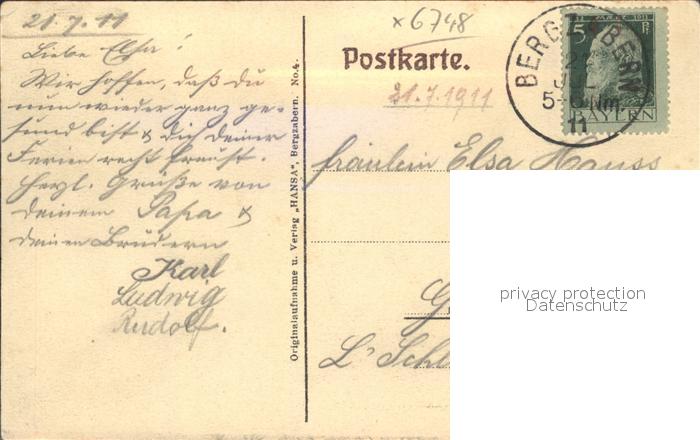 21.7.11
Liebe Elsa!
Wir hoffen, daß du
nun wieder ganz ge-
sund bist & dich deiner
Ferien recht freust.
Herzl. Grüße von
deinem Papa &
deinen Brüdern
Karl
Ludwig
Rudolf.
Originalaufnahme u. Verlag „HANSA", Bergzabern. No. 4.
x 6748
Postkarte.
21.7.1911
BERGZABERN
JUL
5-6 Nm.
11
5 Pf
BAYERN
Fräulein Elsa Hauss
privacy protection
Datenschutz